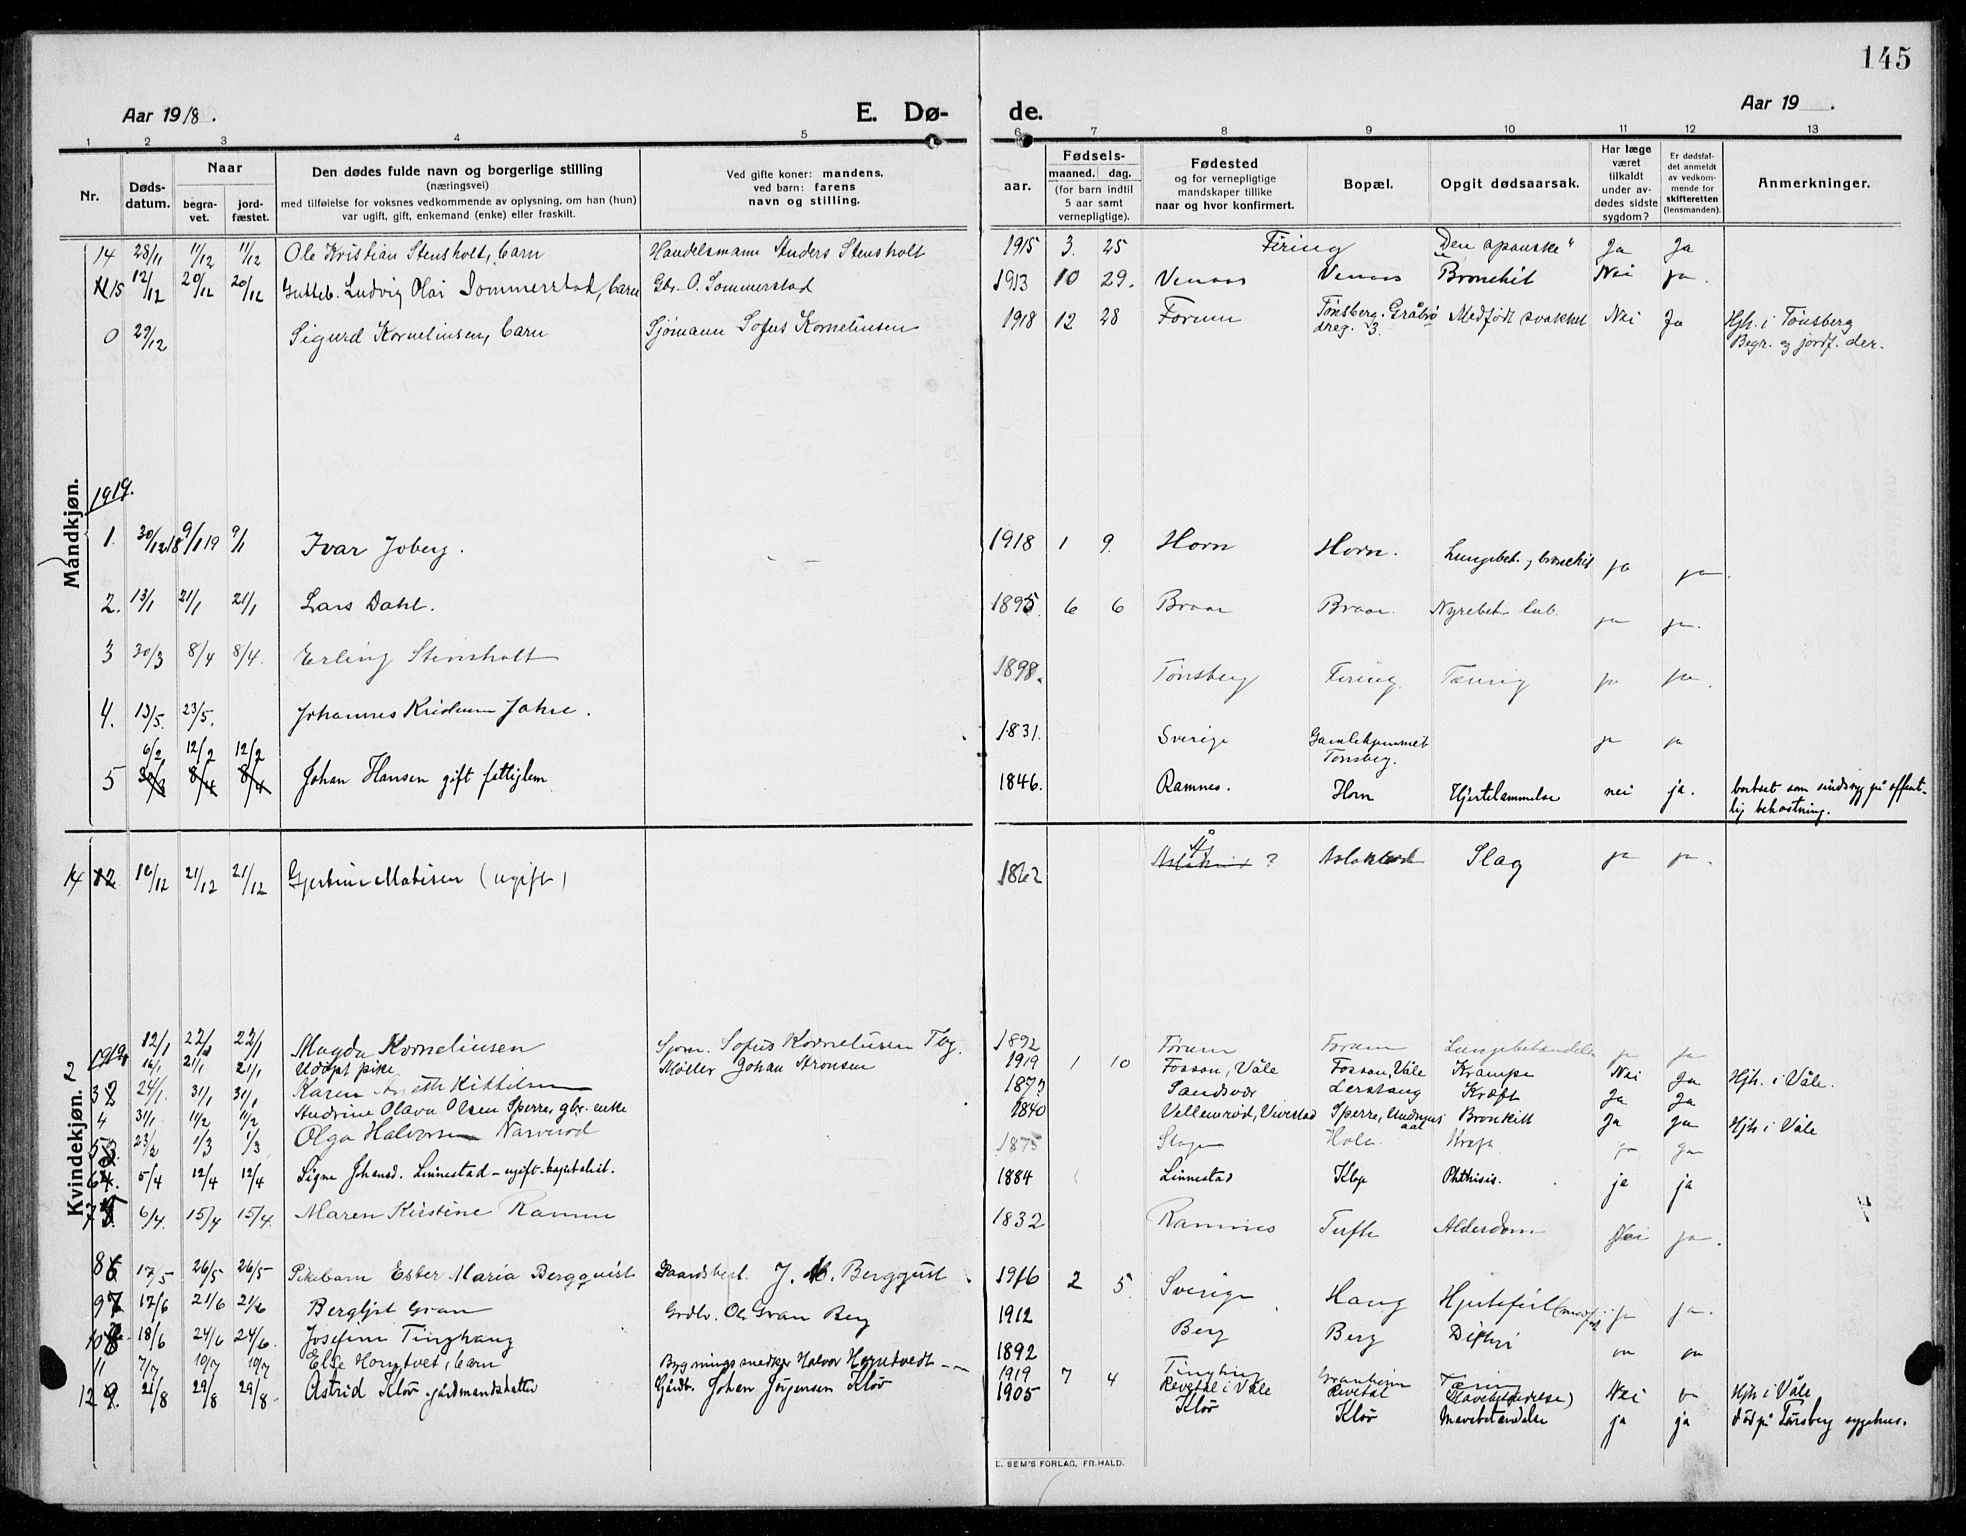 145
Aar 1918.
E. Dø-
de.
Aar 19 .
1 2 3 4 5 6 7 8 9 10 11 12 13
Nr.
Døds-
datum.
Naar
begra-
vet.
jord-
fæstet.
Den dødes fulde navn og borgerlige stilling
(næringsvei)
med tilføielse for voksnes vedkommende av oplysning, om han (hun)
var ugift, gift, enkemand (enke) eller fraskilt.
Ved gifte koner: mandens,
ved barn: farens
navn og stilling.
aar.
Fødsels-
maaned. dag.
(for barn indtil
5 aar samt
vernepligtige).
Fødested
og for vernepligtige
mandskaper tillike
naar og hvor konfirmert.
Bopæl.
Opgit dødsaarsak.
Har læge
været
tilkaldt
under av-
dødes sidste
sygdom?
Er dødsfal-
det anmeldt
av vedkom-
mende for
skifteretten
(lensmanden).
Anmerkninger.
Mandkjøn.
14 28/11 11/12 11/12 Ole Kristian Stensholt, barn Handelsmann Anders Stensholt 1915 3. 25 Firing "Den spanske" Ja Ja
15 12/12 20/12 20/12 Gutteb. Ludvig Olai Sommerstad, barn Gbr. O. Sommerstad 1913 10 29. Venaas Venaas Bronchit Nei ja.
0 29/12 Sigurd Kornelinsen, barn Sjømann Sofus Kornelinsen 1918 12 28 Forum Tønsberg. Gråbrø Medfødt svakhet Nei Ja Hjh. i Tønsberg
dreg. 3. Begr. og jordf. der.
1919.
1. 30/12 18 9/1 19 9/1 Ivar Joberg. 1918 1 9. Horn Horn. Lungebet., bronchit ja ja.
2. 13/1 21/1 21/1 Lars Dahl. 1895. 6 6 Braar Braar. Nyrebet. tub. ja ja.
3 30/3 8/4 8/4. Erling Stensholt 1898. Tønsberg Firing. Tæring ja ja.
4. 13/5. 23/5. Johannes Jahre. 1831. Sverige Gamlehjemmet ja ja
Tønsberg.
5 6/2 12/2 12/2 Johan Hansen gift fattiglem 1846. Ramnes. Horn Hjertelammelse nei ja. bortsat som sindssyg på offent-
lig bekostning.
Kvindekjøn.
14 12/12 21/12 21/12 Gjertine Mathisen (ugift) 1862 Ås ? Slag ja ja.
1919 12/1 22/1 22/1 Magda Kornelinsen Sjøm. Sofus Kornelinsen Tbg. 1892 Forum Forum Lungebetændelse ja ja
2 16/1 21/1 21/1 Udøpt pike Møller Johan Aronsen 1919 1 10 Fossan, Våle Fossan, Våle Krampe Nei Ja Hjh. i Våle.
3 24/1. 31/1 31/1 Karen Kittilsen Sandsvær Lerstang Kræft Ja Ja
4 31/1 11/2 11/2 Andrine Olava Olsen Sperre, gbr. enke 1840 Vellemrød, Vivestad Sperre, Undrums Bronkitt Ja Ja Hjh i Våle
aal
5 23/2 1/3 1/3 Olga Halvorsen Narverød 1875 Slagen ja ja
6 5/4 12/4 12/4 Signe Johansd. Linnestad - ugift - kapitalist. 1884 Linnestad Klop Phthisis. ja ja
7 6/4. 15/4 15/4. Maren Kirstine Ramnes 1832 Ramnes Tufte Alderdom Nei ja.
8 17/5 26/5 26/5 Pikebarn Ester Maria Bergquist Gaardsbest. J. M. Bergquist. 1916 2 5. Sverige Haug Hjertefeil ja ja.
9 12/6 21/6 21/6 Bergljot Gran Grdbr. Ole Gran Berg 1912 Berg Berg Difteri
10 18/6 24/6 24/6. Josefine Tinghaug 1892 Tinghaug Granheim Tæring
11 7/7 10/7 10/7 Else Horntvet, barn Bygningssnedker Halvor Horntvedt 1919 7 4 Revetal i Våle Revetal Nei Hjh i Våle
12 21/8 29/8 29/8. Astrid Klør. gårdmandsdatter Gårdbr. Johan Jørgensen Klør 1905 Klør Klør Mavebetændelse ja ja død på Tønsberg sygehus.
E. SEM'S FORLAG, FR.HALD.